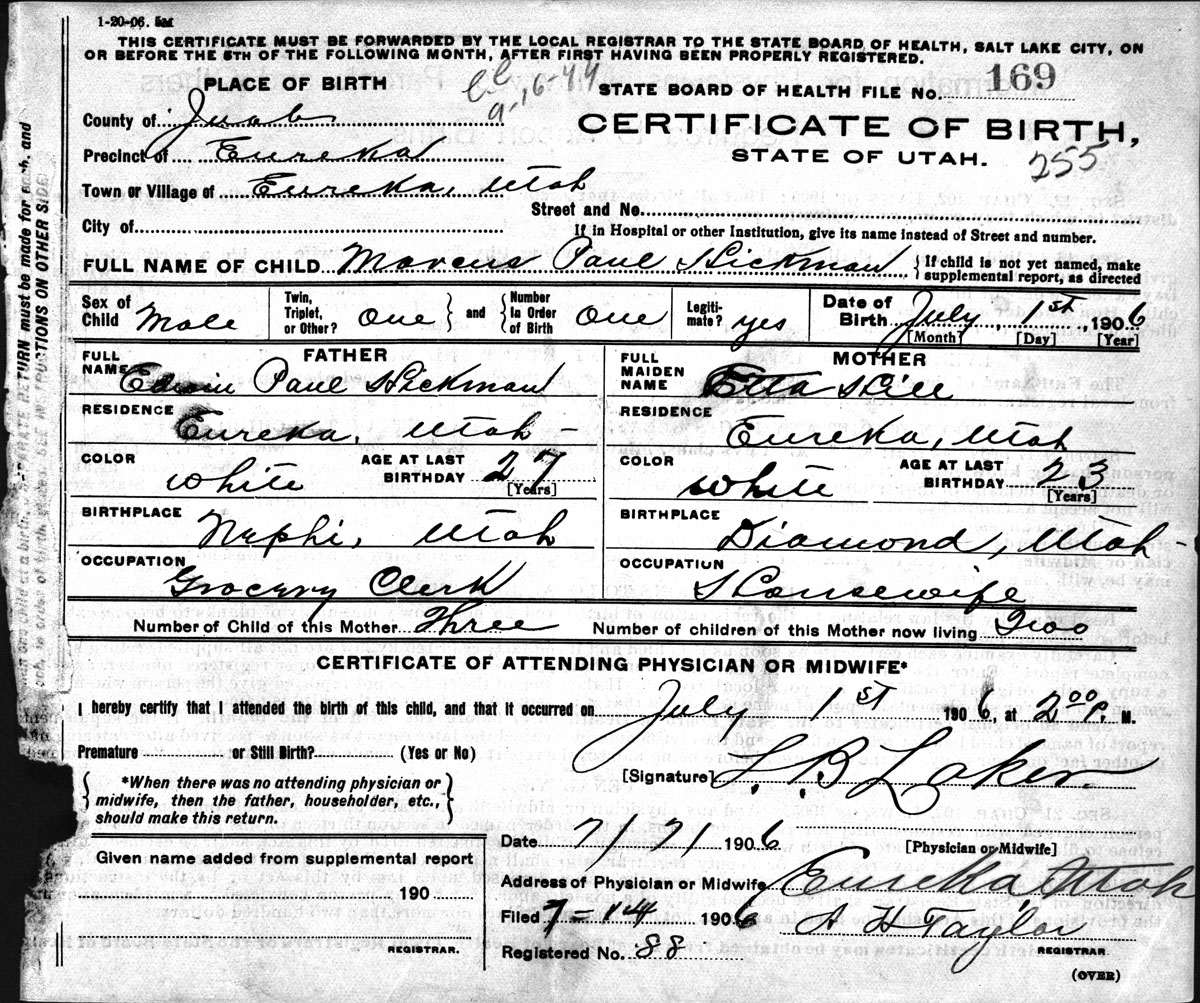 1-20-06. 5M
THIS CERTIFICATE MUST BE FORWARDED BY THE LOCAL REGISTRAR TO THE STATE BOARD OF HEALTH, SALT LAKE CITY, ON
OR BEFORE THE 5TH OF THE FOLLOWING MONTH, AFTER FIRST HAVING BEEN PROPERLY REGISTERED.
PLACE OF BIRTH
STATE BOARD OF HEALTH FILE No. 169
County of Juab
CERTIFICATE OF BIRTH,
Precinct of Eureka
STATE OF UTAH. 255
Town or Village of Eureka, Utah
Street and No.
City of
If in Hospital or other Institution, give its name instead of Street and number.
FULL NAME OF CHILD Marcus Paul Hickman { If child is not yet named, make
supplemental report, as directed
Sex of Child Male
Twin, Triplet, or Other? One } and { Number In Order of Birth One
Legitimate? yes
Date of Birth July, 1st, 1906
[Month] [Day] [Year]
FATHER
FULL NAME Edwin Paul Hickman
MOTHER
FULL MAIDEN NAME Etta Hill
RESIDENCE Eureka, Utah -
RESIDENCE Eureka, Utah
COLOR white AGE AT LAST BIRTHDAY 27 [Years]
COLOR White AGE AT LAST BIRTHDAY 23 [Years]
BIRTHPLACE Nephi, Utah
BIRTHPLACE Diamond, Utah -
OCCUPATION Grocery Clerk
OCCUPATION Housewife
Number of Child of this Mother Three Number of children of this Mother now living Two
CERTIFICATE OF ATTENDING PHYSICIAN OR MIDWIFE*
I hereby certify that I attended the birth of this child, and that it occurred on July 1st 1906, at 2 00 P. M.
Premature or Still Birth? (Yes or No)
[Signature]
{ *When there was no attending physician or
midwife, then the father, householder, etc.,
should make this return. }
Date 7/7/ 1906 [Physician or Midwife]
Given name added from supplemental report
190
REGISTRAR.
Address of Physician or Midwife Eureka, Utah
Filed 7-14 1906 A H Taylor
Registered No. 88 REGISTRAR.
(OVER)